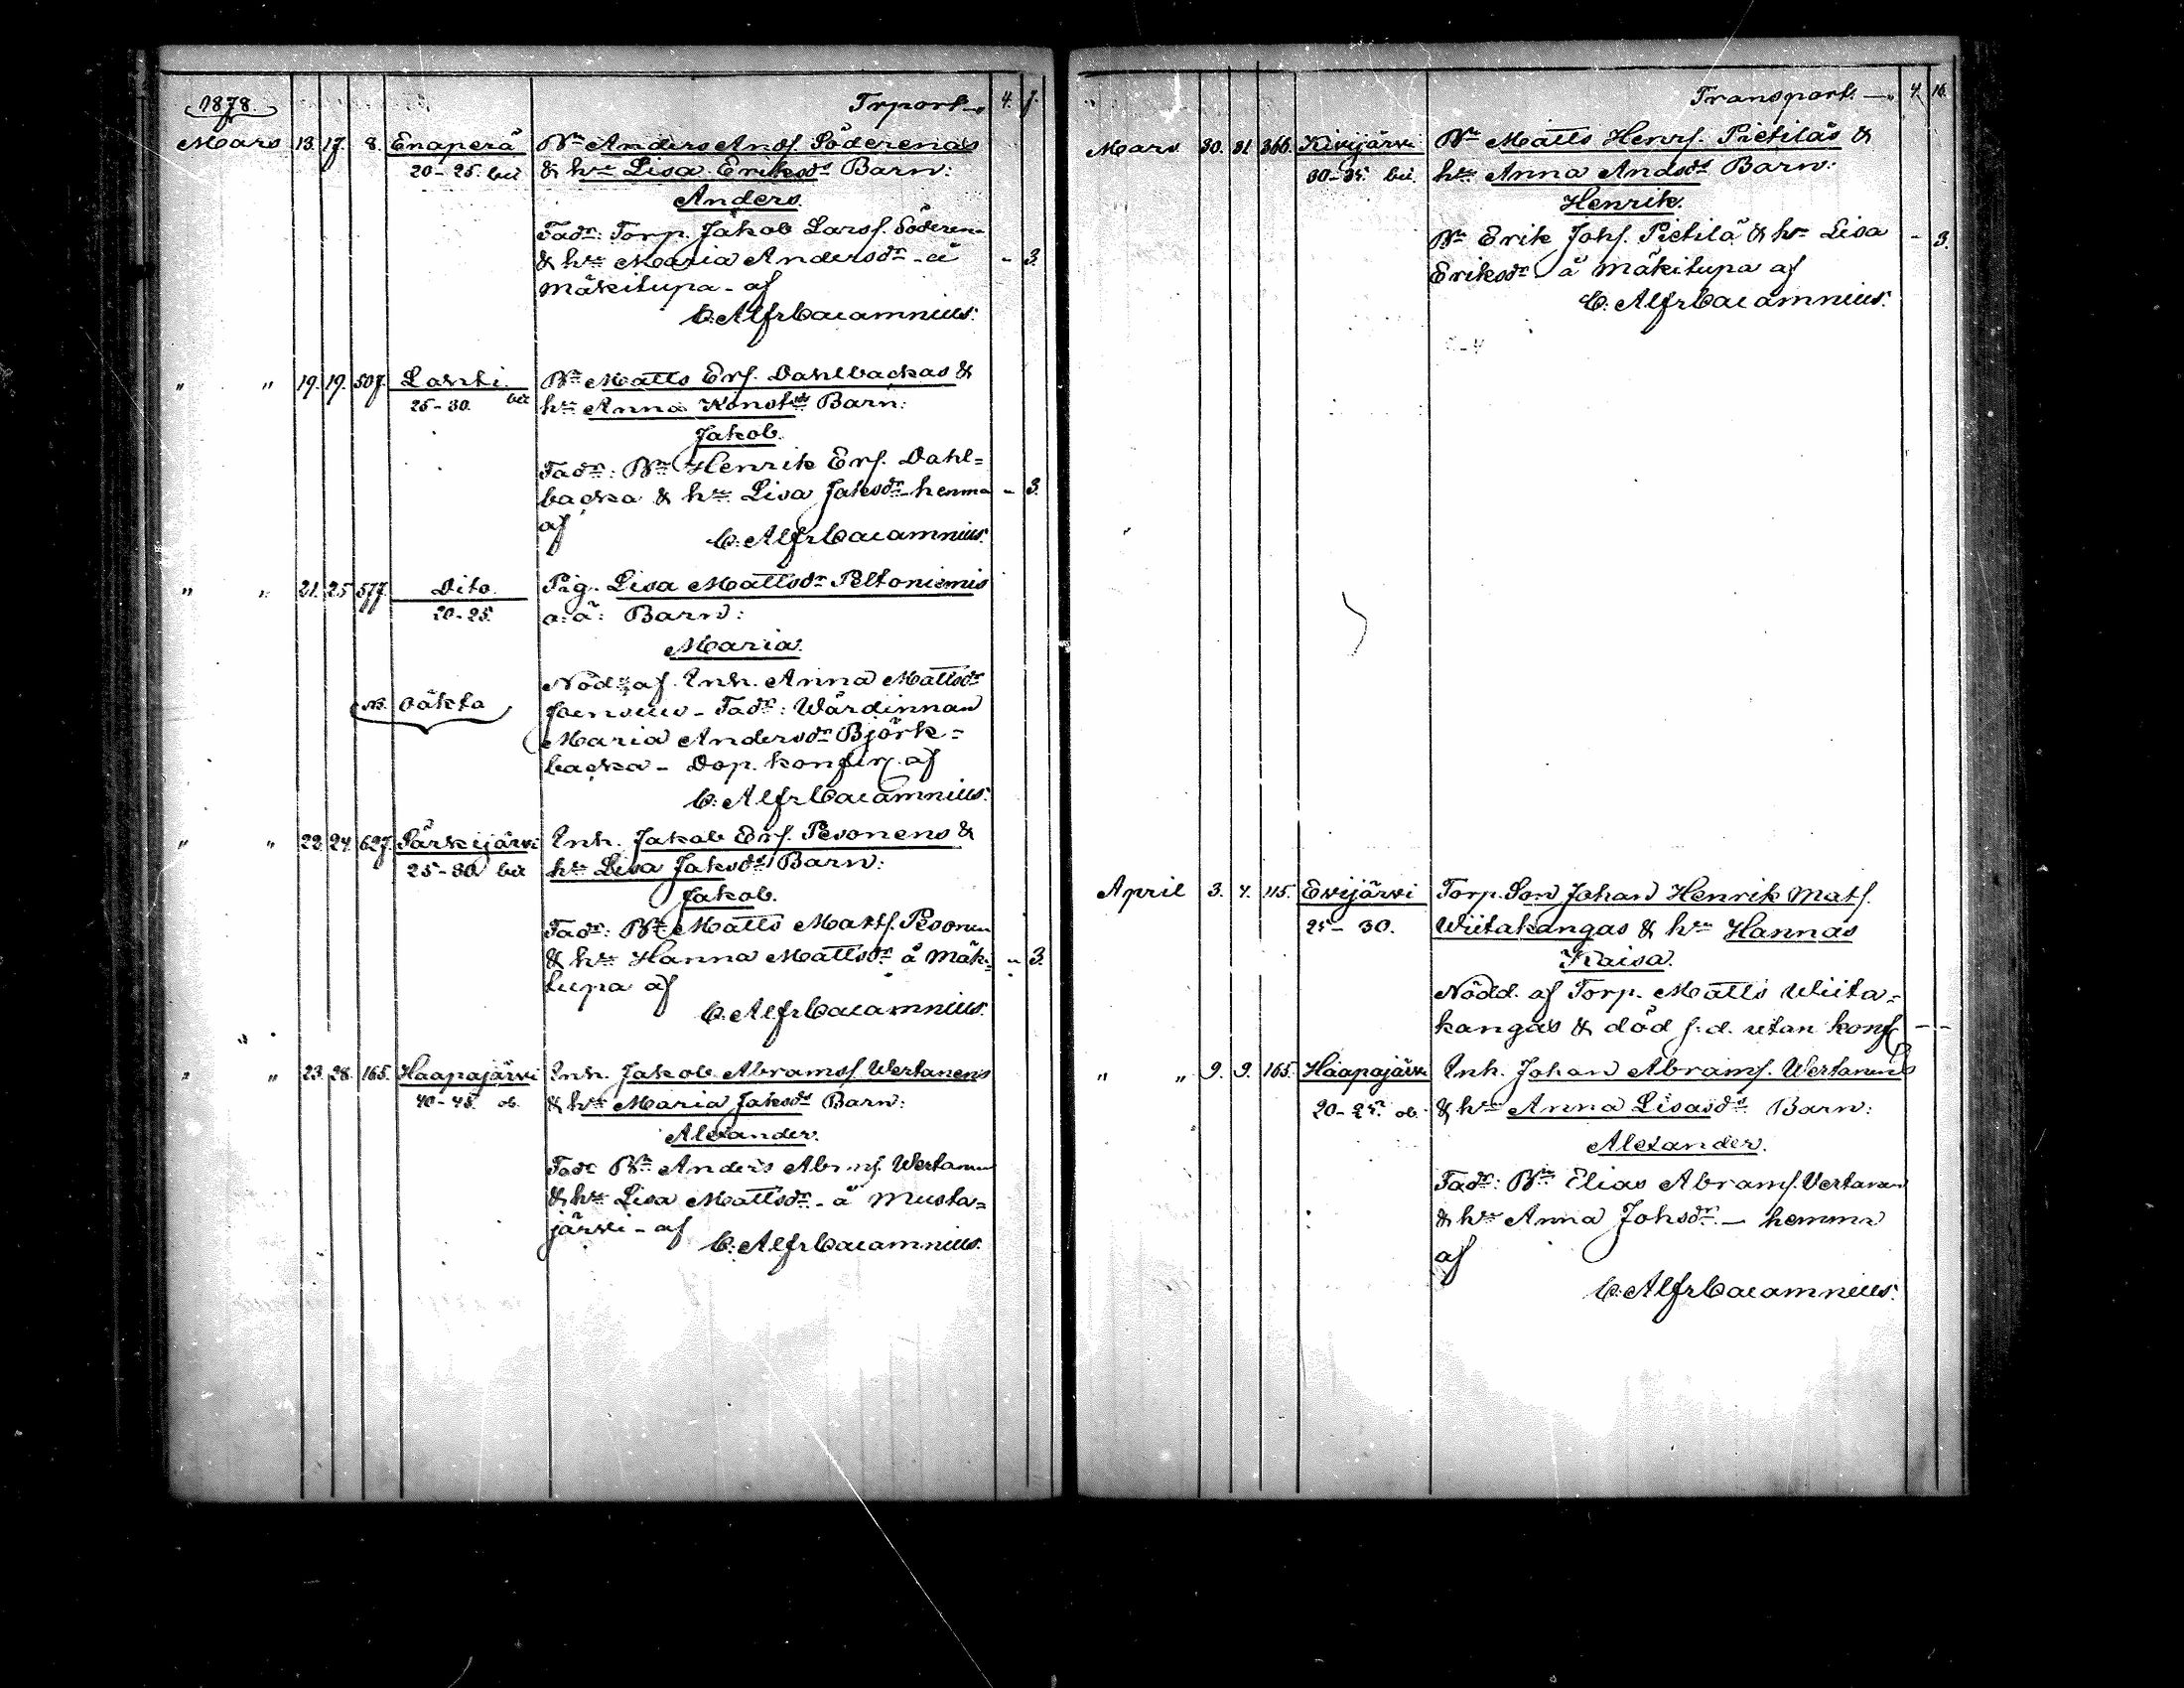 1878. Trport 4. 7.
Mars 13. 17. 8. Enaperä Bn Anders Ands. Söderenäs
20-25. bei & hn Lisa Eriksdr Barn:
Anders.
Fadr: Torp. Jakob Larss. Söderen-
& hn Maria Andersdr - å - 3.
Mäkitupa - af
C. Alfr Cacamnius.
" " 19. 19. 507. Laski. Bn Matts Ers. Dahlbackas &
25-30. bei hn Anna Konstdr Barn:
Jakob.
Fadr: Bn Henrik Ers. Dahl=
backa & hn Lisa Jaksdr - hemma - 3.
af
C. Alfr Cacamnius.
" " 21. 25. 577. Dito. Pig. Lisa Mattsdr Peltoniemis
20-25. o. ä: Barn:
Maria.
Nöd: af Inh. Anna Mattsdr
NB. oäkta Fadr: Wärdinnan
Maria Andersdr Björk=
backa - Dop. konfir. af
C. Alfr Cacamnius.
" " 22. 24. 627. Särkijärvi Inh. Jakob Ers. Pesonens &
25-30 bei hn Lisa Jaksdr Barn:
Jakob.
Fadr: Bn Matts Matts. Pesonen
& hn Hanna Mattsdr å Mäki- - 3.
tupa af
C. Alfr Cacamnius.
" " 23. 28. 165. Haapajärvi Inh. Jakob Abrams. Wertanens
40-45. ob. & hn Maria Jaksdr Barn:
Alexander.
Fadr Bn Anders Abrms. Wertanen
& hn Lisa Mattsdr - å Musta=
järvi - af
C. Alfr Cacamnius.
Transport. 4. 16.
Mars 30. 31. 366. Kivijärvi Bn Matts Henrs. Pietiläs &
30-35. bei. hn Anna Andsdr Barn:
Henrik.
Bn Erik Johs. Pietilä & hn Lisa - 3.
Eriksdr å Mäkitupa af
C. Alfr Cacamnius.
April 3. 4. 115. Evijärvi Torp. Son Johan Henrik Mats.
25-30. Wiitakangas & hn Hannas
Kaisa.
Nödd. af Torp. Matts Wiita-
kangas & död s. d. utan konf. - -
" " 9. 9. 165. Haapajärvi Inh. Johan Abrams. Wertanens
20-25. ob. & hn Anna Lisasdr Barn:
Alexander.
Fadr: Bn Elias Abrams. Vertanen
& hn Anna Johsdr - hemma
af
C. Alfr Cacamnius.